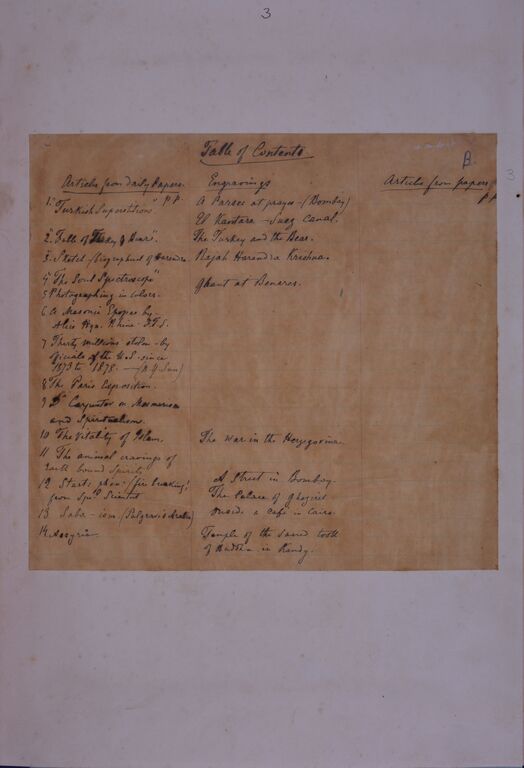 3
Table of Contents
B.
3
Articles from daily Papers.
P.P.
1 "Turkish Superstition"
2. "Fable of Turkey & Bear".
3. Sketch (biographical) of Harendra
4 "The Soul Spectroscope"
5 Photographing in colors.
6 A Masonic Epopee by
Alice Hyn. Rhine. F.T.S.
7 Thirty millions stolen by
officials of the U.S. since
1873 to 1878. — (N.Y. Sun)
8 The Paris Exposition.
9 Dr Carpenter on Mesmerism
and Spiritualism.
10 The Vitality of Islam.
11 The animal cravings of
Earth bound Spirits
12 Starts (fire breaking)
from Scientist
13. Saba-ism. (Palgrave's Arabia)
14. Assyria
Engravings
A Parsee at prayer - (Bombay)
El Kantara - Suez Canal.
The Turkey and the Bear.
Rajah Harendra Krishna.
Ghaut at Benares.
The War in the Herzegovina
A Street in Bombay.
The Palace of Ghezireh
Inside a Café in Cairo.
Temple of the sacred tooth
of Buddha in Kandy.
Articles from papers.
P.P.